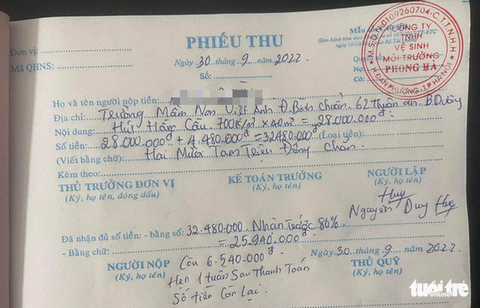 Đơn vị:
Mã QHNS:
PHIẾU THU
Ngày 30 tháng 9 năm 2022
Số:
M.S.D.N: 0109260704-C.T.T.N.H.H
CÔNG TY
TNHH
VỆ SINH
MÔI TRƯỜNG
PHONG HÀ
Họ và tên người nộp tiền:
Địa chỉ: Trường Mầm Non Việt Anh Đ. Bình Chuẩn. 62 Thuận an B.Dương
Nội dung: Hút Hầm Cầu 700K/m³ x 40m³ = 28.000.000đ
Số tiền: 28.000.000đ + 4.480.000đ = 32480.000đ (Loại tiền):
(Viết bằng chữ) Hai Mươi Tam Triệu Đồng Chẵn
Kèm theo:
THỦ TRƯỞNG ĐƠN VỊ KẾ TOÁN TRƯỞNG NGƯỜI LẬP
(Ký, họ tên, đóng dấu) (Ký, họ tên) (Ký, họ tên)
Huy
Nguyễn Duy Huy
Đã nhận đủ số tiền: - bằng số: 32.480.000. Nhận Trước 80%
- Bằng chữ: = 25.940.000đ
Ngày 30 tháng 9 năm 2022
NGƯỜI NỘP Còn 6.540.000đ THỦ QUỸ
(Ký, họ tên) (Ký, họ tên)
Hẹn 1 tuần Sau Thanh Toán
Số Tiền Còn Lại.
tuổi trẻ